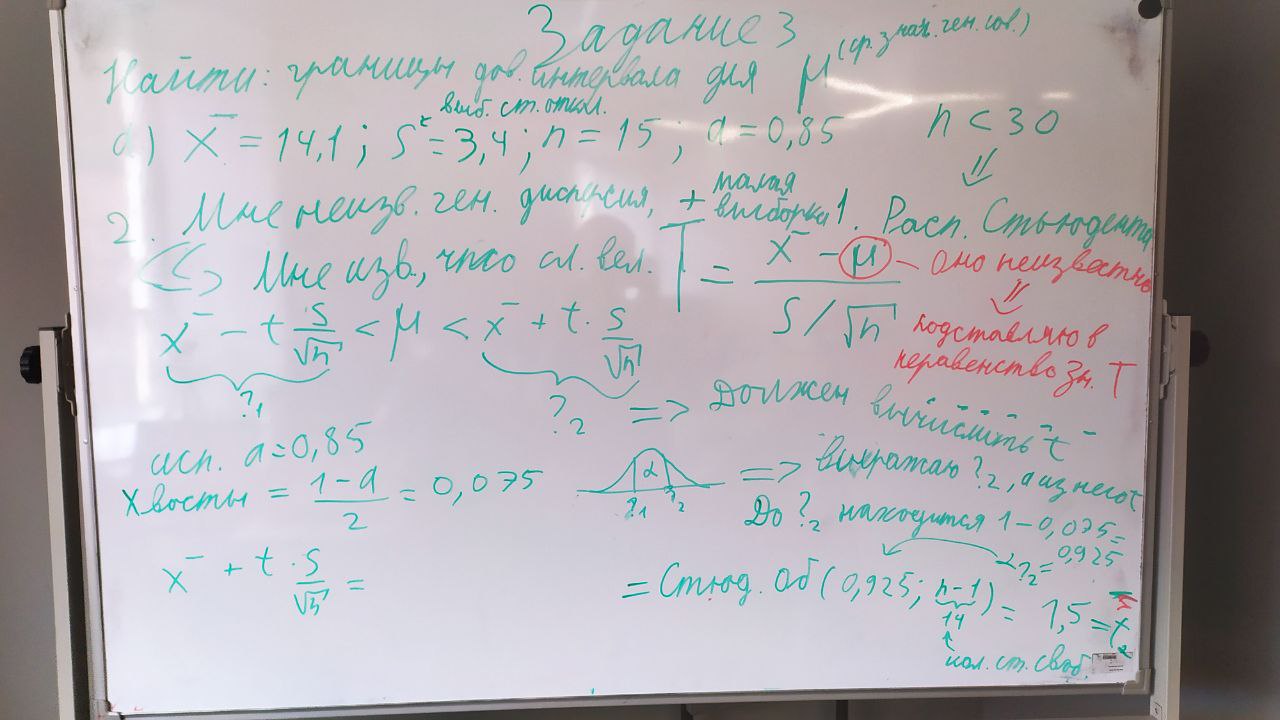 Задание 3
Найти: границы дов. интервала для μ (ср. знач. ген. сов.)
выб. ст. откл.
а) x̄ = 14,1; S = 3,4; n = 15; α = 0,85
n < 30
⇓
2. Мне неизв. ген. дисперсия, + малая выборка
1. Расп. Стьюдента
Мне изв., что сл. вел. T = (x̄ - μ) / (S/√n)
оно неизвестно
⇓
подставляю в
неравенство зн. T
x̄ - t S/√n < μ < x̄ + t · S/√n
?₁ ?₂
=> Должен вычислить "t"
исп. α = 0,85
Хвосты = (1-α)/2 = 0,075
α
?₁ ?₂
=> выражаю ?₂, а из него t
До ?₂ находится 1 - 0,075 =
0,925
α?₂ =
x̄ + t · S/√n =
= Стьюд. Об (0,925; n-1) = 1,5 =
14
кол. ст. своб.